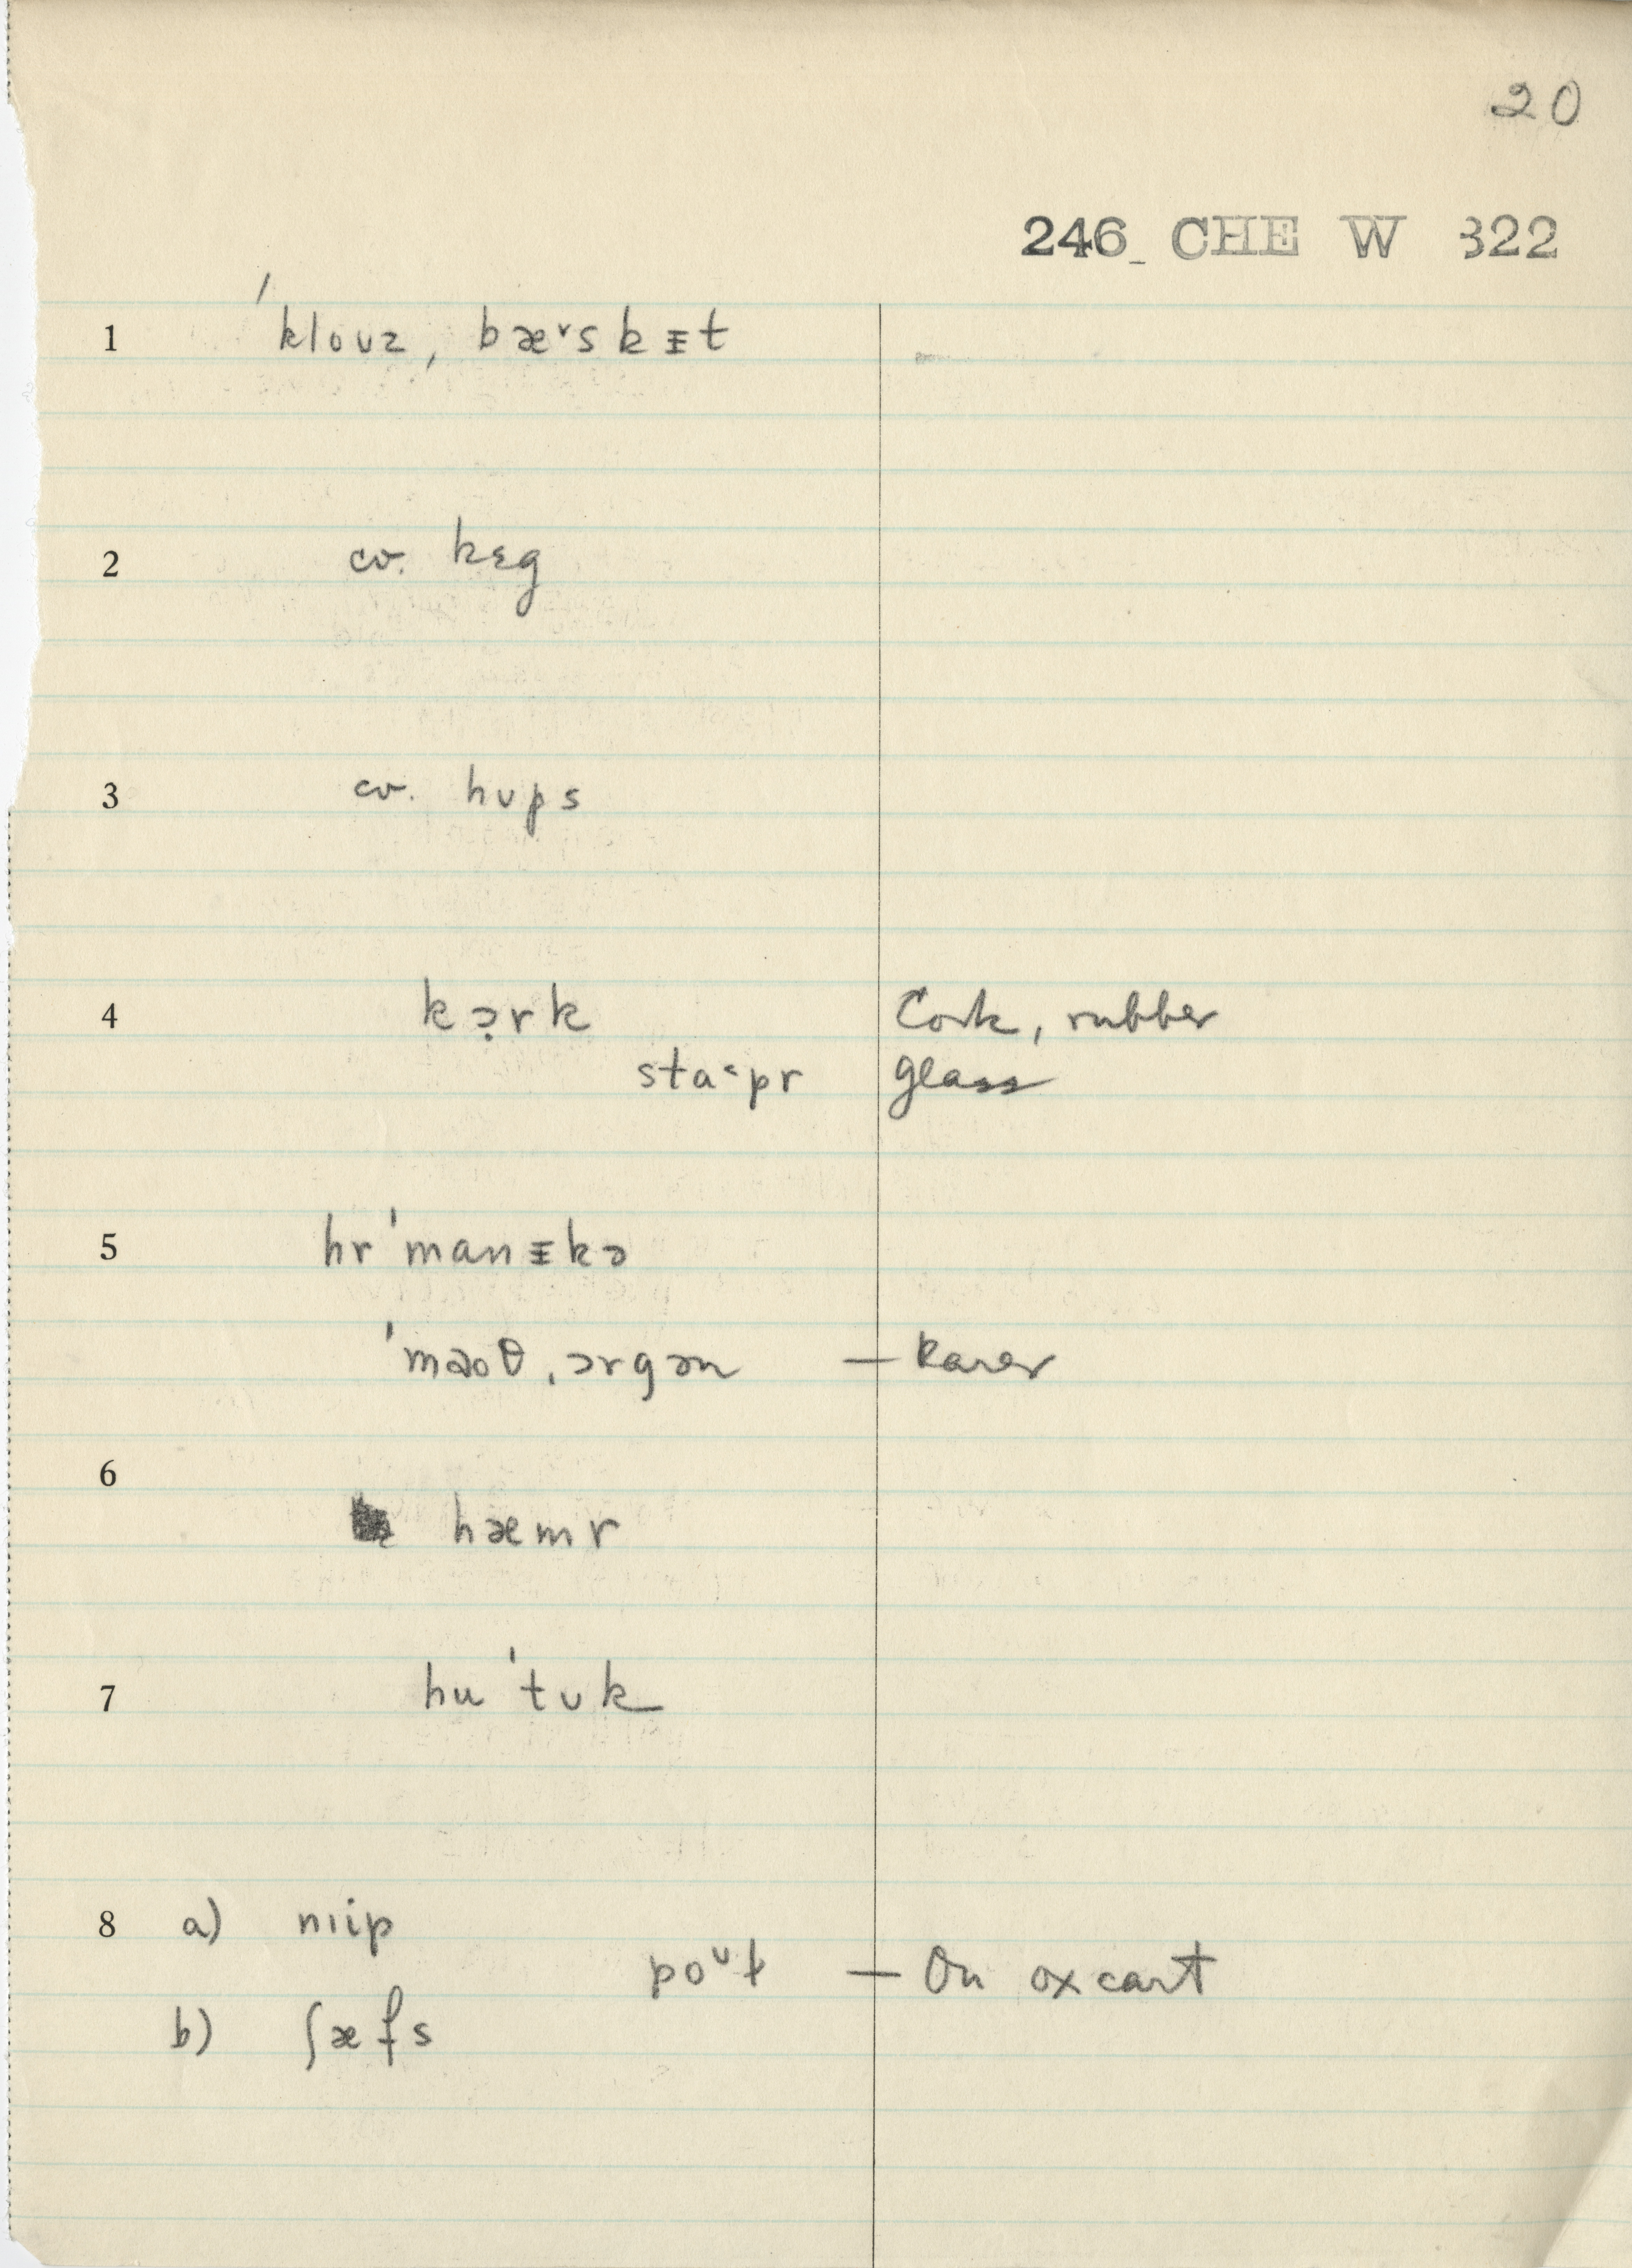 20
246 CHE W 322
1 ˈklouz ˌbæ˅skᵻt
2 cv. kɛg
3 cv. hups
4 kɔ̣rk Cork, rubber
sta˂pr glass
5 hrˈmanᵻkə
ˈmaoθ ˌɔrgən — Rarer
6 hæmr
7 huˈtuk
8 a) nɪip
poᵘɫ — On oxcart
b) ʃæfs